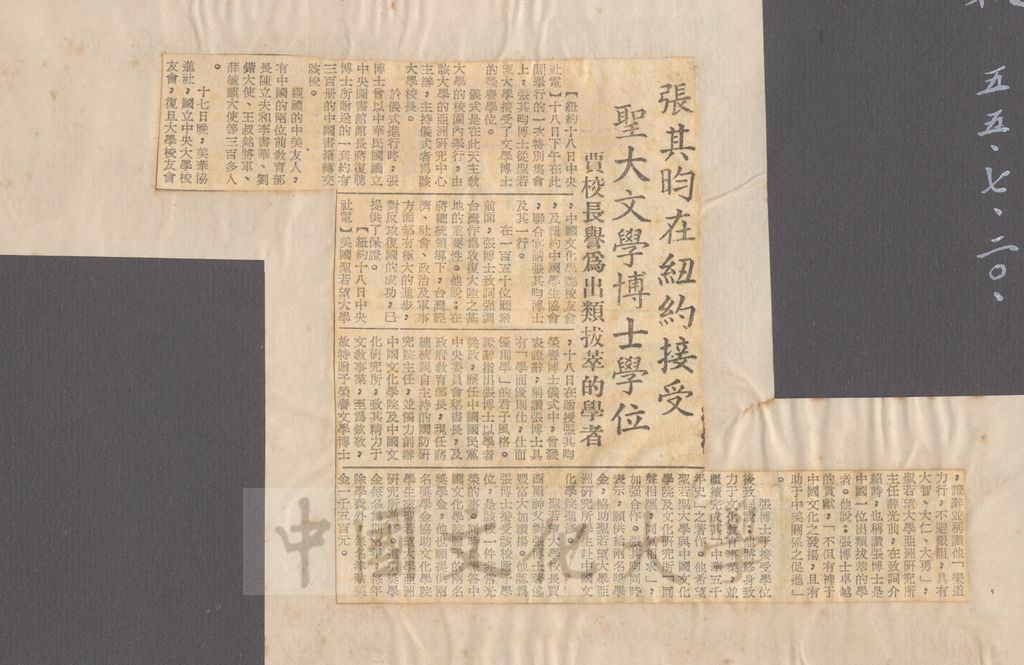 五五、七、二〇、
張其昀在紐約接受
聖大文學博士學位
賈校長譽為出類拔萃的學者
【紐約十八日中央
社電】十八日下午在此
間舉行的一次特別集會
上,張其昀博士從聖若
望大學接受了文學博士
的榮譽學位。
儀式是在此天主教
大學的校園內舉行,由
該大學的亞洲研究中心
主辦,主持儀式者為該
大學校長。
於儀式進行時,張
博士曾以中華民國國立
中央圖書館館長蔣復璁
博士所贈送的一套約有
三百冊的中國書籍轉交
該校。
觀禮的中美友人,
有中國的兩位前教育部
長陳立夫和李書華、劉
鍇大使、王叔銘將軍、
薛毓麒大使等三百多人
。
十七日晚,美華協
進社,國立中央大學校
友會,復旦大學校友會
,中國文化學院校友會
及紐約中國學生協會
,聯合宴請張其昀博士
及其一行。
在一百五十位聽眾
前面,張博士致詞強調
台灣作為收復大陸之基
地的重要性。他說:在
蔣總統領導下,台灣經
濟、社會、政治及軍事
方面都有極大的進步,
對反攻復國的成功,已
提供了保證。
【紐約十八日中央
社電】美國聖若望大學
,十八日在贈授張其昀
榮譽博士儀式中,曾發
表證辭,稱讚張博士具
有「學而優則仕,仕而
優則學」的君子風格。
證辭指出張博士以學者
從政,歷任中國國民黨
中央委員會秘書長,及
政府教育部長,現任蔣
總統親自主持的國防研
究院主任,並獨力創辦
中國文化學院及中國文
化研究所,致其精力于
文教事業,至為欽敬,
故特贈予榮譽文學博士
,證辭並稱讚他「樂道
力行,不避艱阻,具有
大智、大仁、大勇」,
聖若望大學亞洲研究所
主任薛光前,在致詞介
紹時,也稱讚張博士是
中國一位出類拔萃的學
者。他說:張博士卓越
的貢獻,「不但有裨于
中國文化之發揚,且有
助于中美關係之促進」
。
張博士于接受學位
後致詞說:他將終身致
力于文化教育事業,並
繼續完成其「中華五千
年史」之著作。他希望
聖若望大學與中國文化
學院及文化研究所「同
聲相應,同氣相求」,
加強合作。張其昀同時
表示,願供給兩名獎學
金,協助聖若望大學亞
洲研究所學生赴中國文
化學院進修。
聖若望大學校長賈
西爾神父對張博士著述
豐富大加讚揚。他認為
張博士接受該校贈予學
位,是該校一件非常光
榮的事。他於答謝中
國文化學院贈予的兩名
獎學金時,他也願提供兩
名獎學金,資助文化學院
學生來聖若望大學亞洲
研究所進修。這項獎學
金每名為期兩年,每年
除學費外,每名津貼美
金一千五百元。